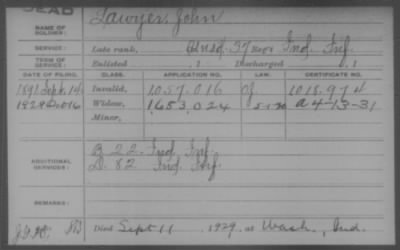 DEAD
NAME OF SOLDIER: Lawyer, John
SERVICE: Late rank, Unsd. 37 Regt Ind. Inf.
TERM OF SERVICE: Enlisted , 1 Discharged , 1
DATE OF FILING. CLASS. APPLICATION NO. LAW. CERTIFICATE NO.
1891 Sept. 14 Invalid, 1.057.016 1.018.974
1929 Oct 16 Widow, 1653,024 5+20 a 4-13-31
Minor,
ADDITIONAL SERVICES: B 22 Ind. Inf.
D. 82 Ind. Inf.
REMARKS:
Died Sept 11 , 1929, at Wash , Ind.